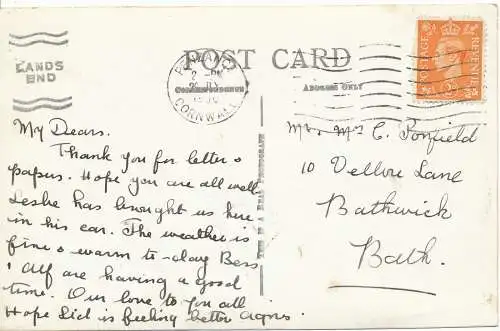 LANDS
END
POST CARD
PENZANCE
CORNWALL
CORRESPONDENCE
ADDRESS ONLY
POSTAGE REVENUE
THIS IS A REAL PHOTOGRAPH
My Dears.
Thank you for letter &
papers. Hope you are all well
Leslie has brought us here
in his car. The weather is
fine & warm to-day Bess
& Alf are having a good
time. Our love to you all
Hope Sid is feeling better again.
Mr & Mrs C. Ponfield
10 Vellore Lane
Bathwick
Bath.